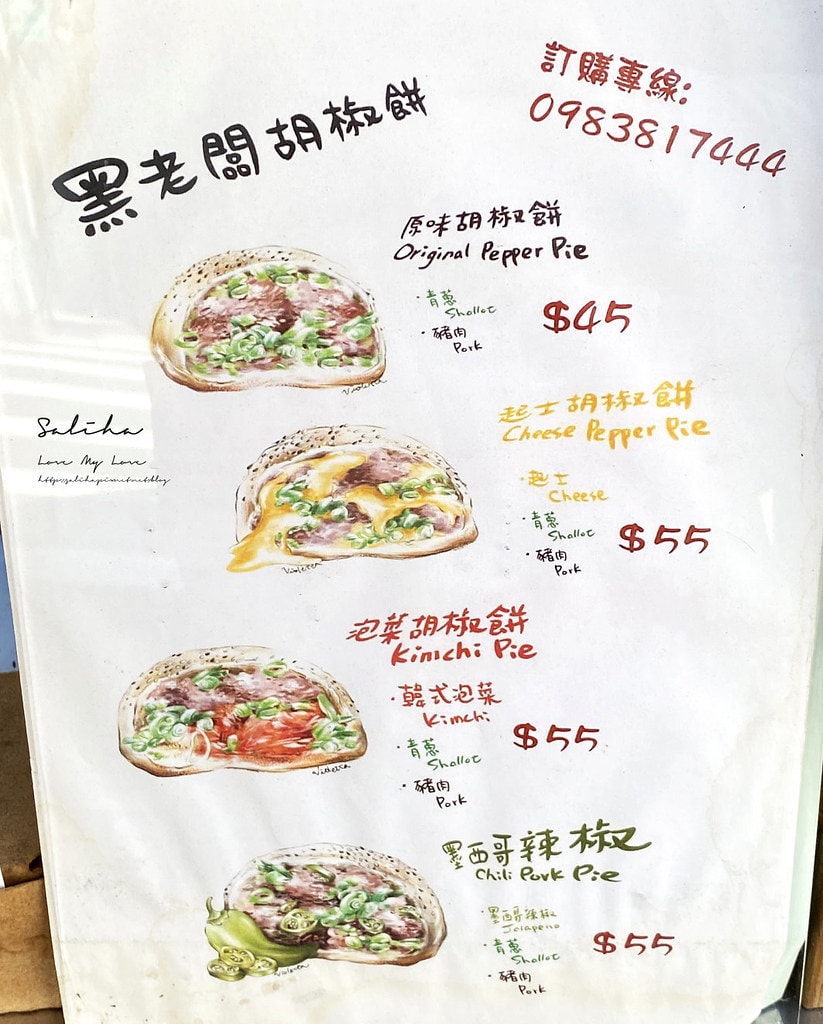 訂購專線:
0983817444
黑老闆胡椒餅
原味胡椒餅
Original Pepper Pie
·青蔥
Shallot
·豬肉
Pork
$45
Violetta
Saliha
Love My Love
http://saliha.pixnet.net/blog
起士胡椒餅
Cheese Pepper Pie
·起士
Cheese
·青蔥
Shallot
·豬肉
Pork
$55
Violetta
泡菜胡椒餅
Kimchi Pie
·韓式泡菜
Kimchi
·青蔥
Shallot
·豬肉
Pork
$55
Violetta
墨西哥辣椒
Chili Pork Pie
·墨西哥辣椒
Jalapeno
·青蔥
Shallot
·豬肉
Pork
$55
Violetta